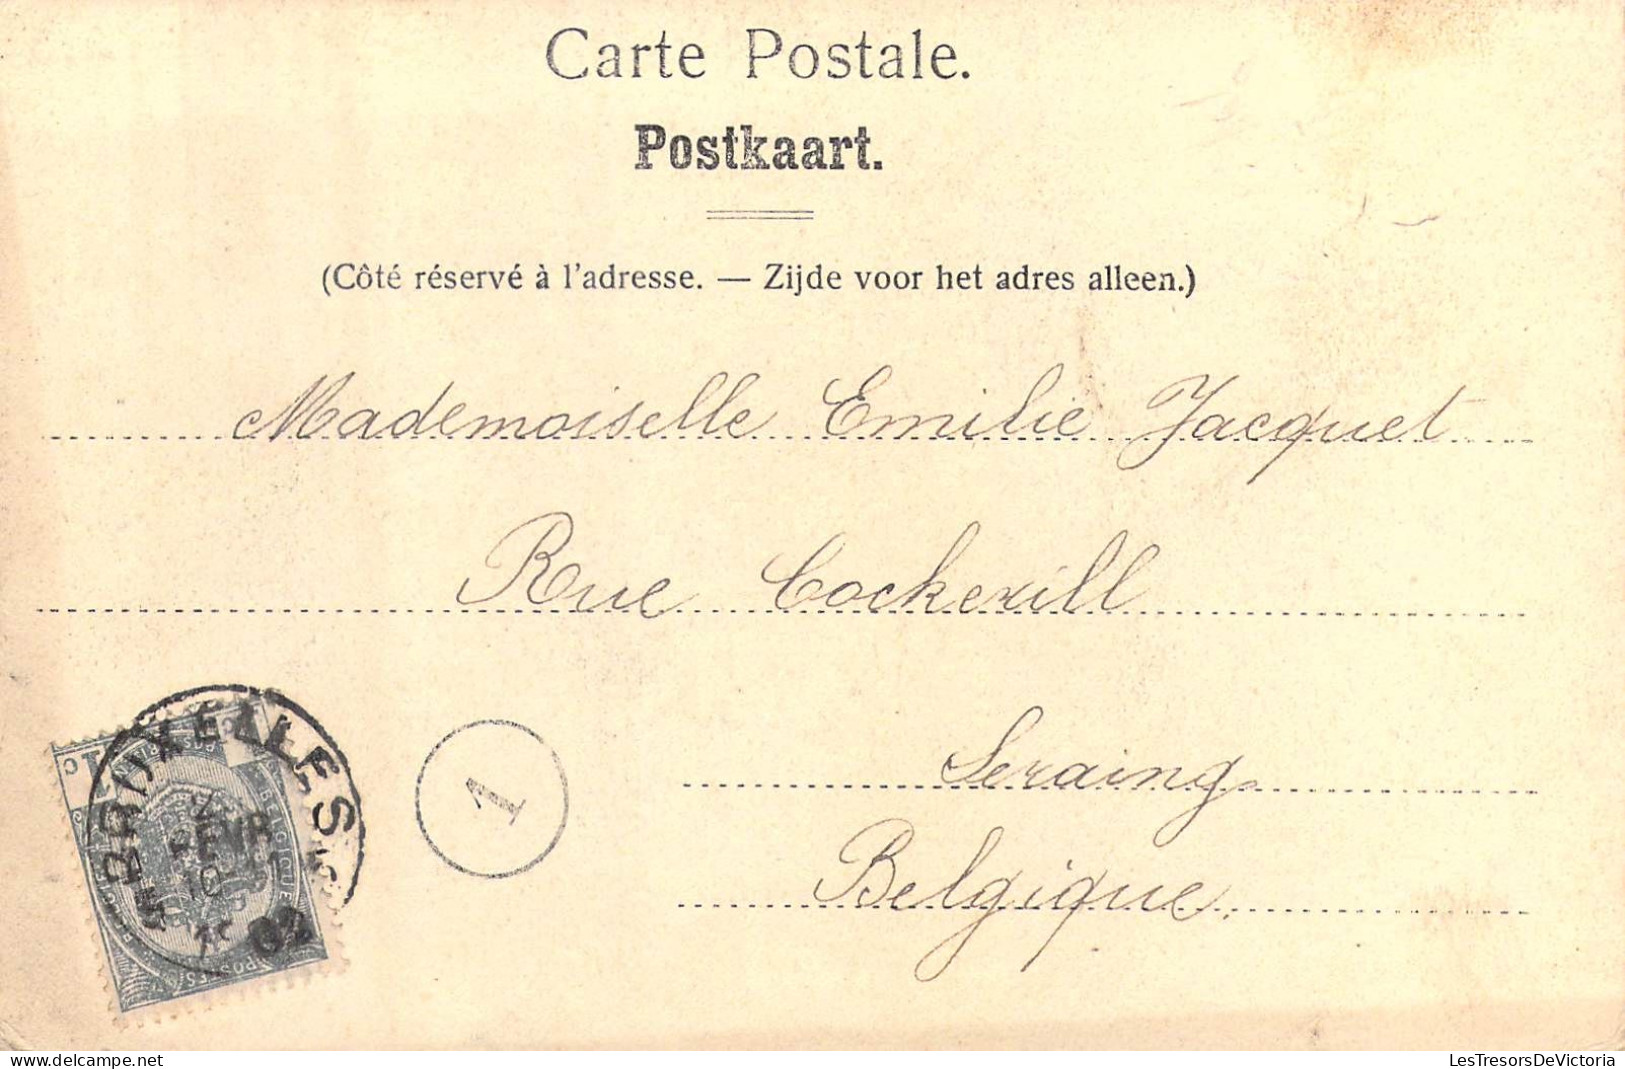 Carte Postale.
Postkaart.
(Côté réservé à l'adresse. — Zijde voor het adres alleen.)
Mademoiselle Emilie Jacquet
Rue Cockerill
Seraing
Belgique.
BRUXELLES
1
02
BELGIQUE
POSTES
LesTresorsDeVictoria